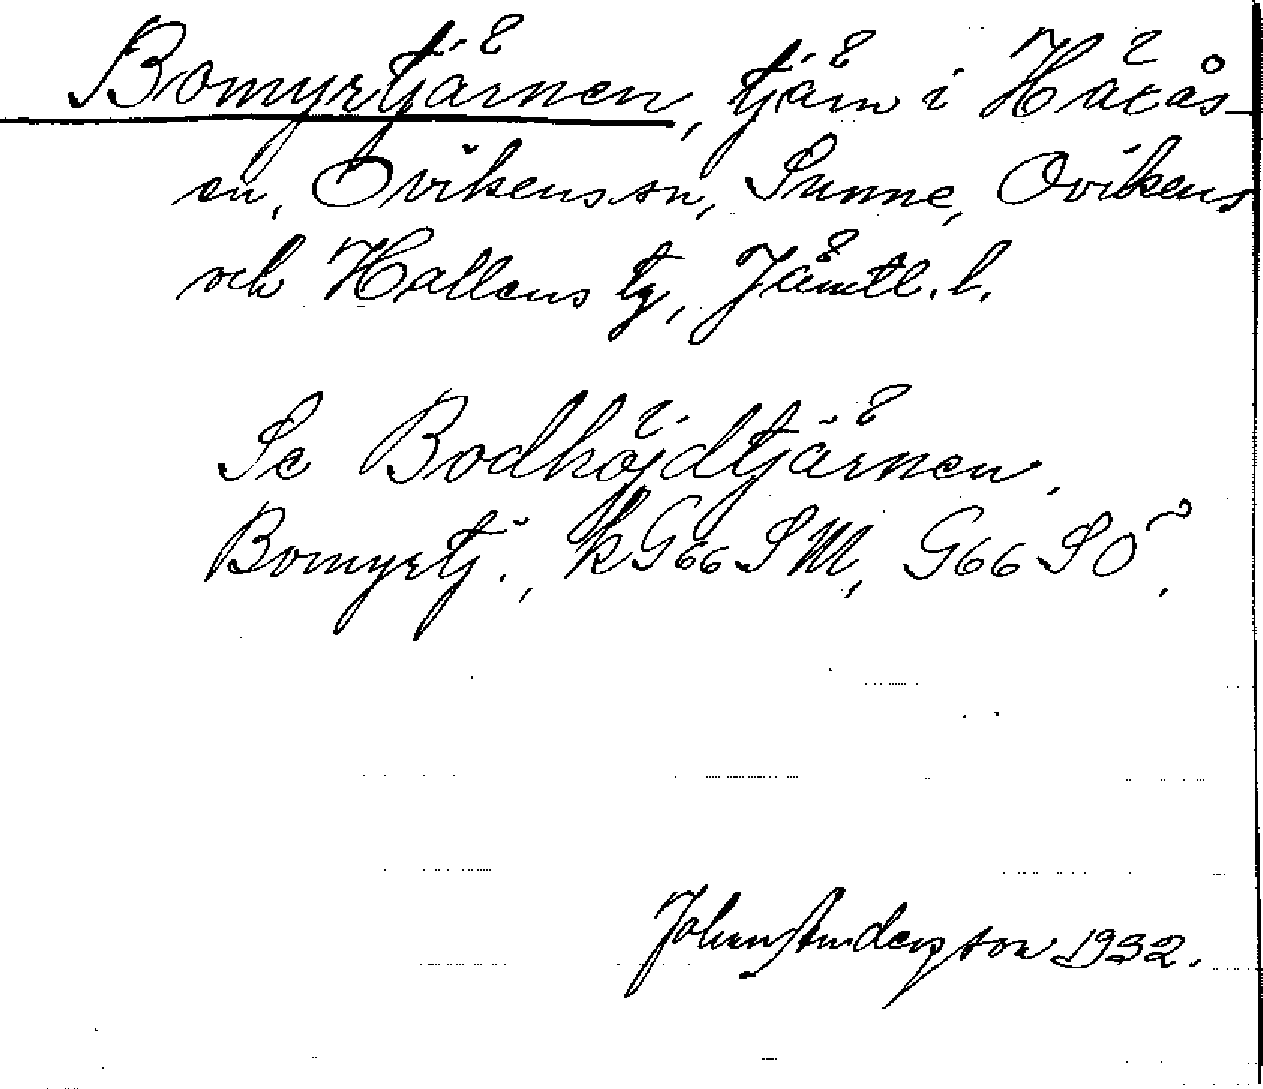 Bomyrtjärnen, tjärn i Hätås-
en, Ovikens sn, Sunne, Ovikens
och Hallens tg, Jämtl. l.
Se Bodhöjdtjärnen.
Bomyrtj., kG66SM, G66SÖ.
Johan Anderson 1932.